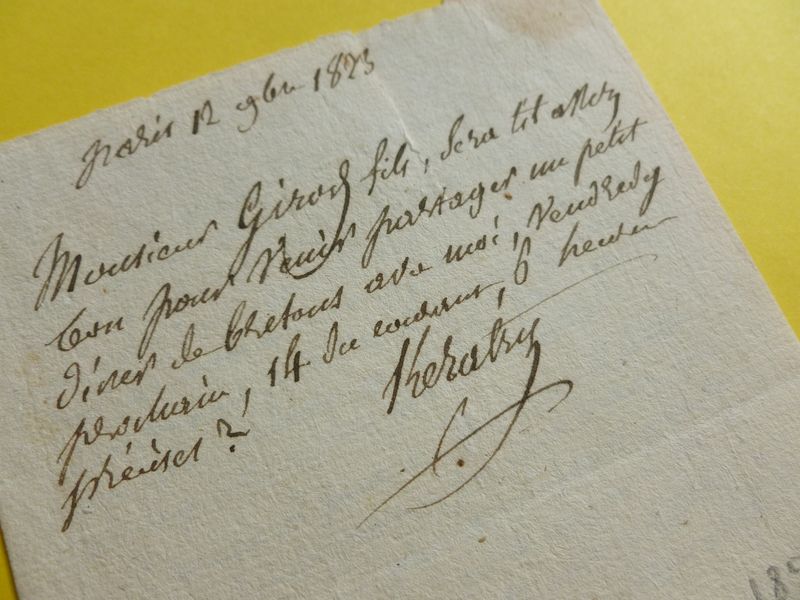 paris 12 9bre 1823
Monsieur Girod fils, sera til assez
bon pour venir partager un petit
diner de bretons avec moi, vendredy
prochain, 14 du courant, 6 heures
précises ?
Keratry